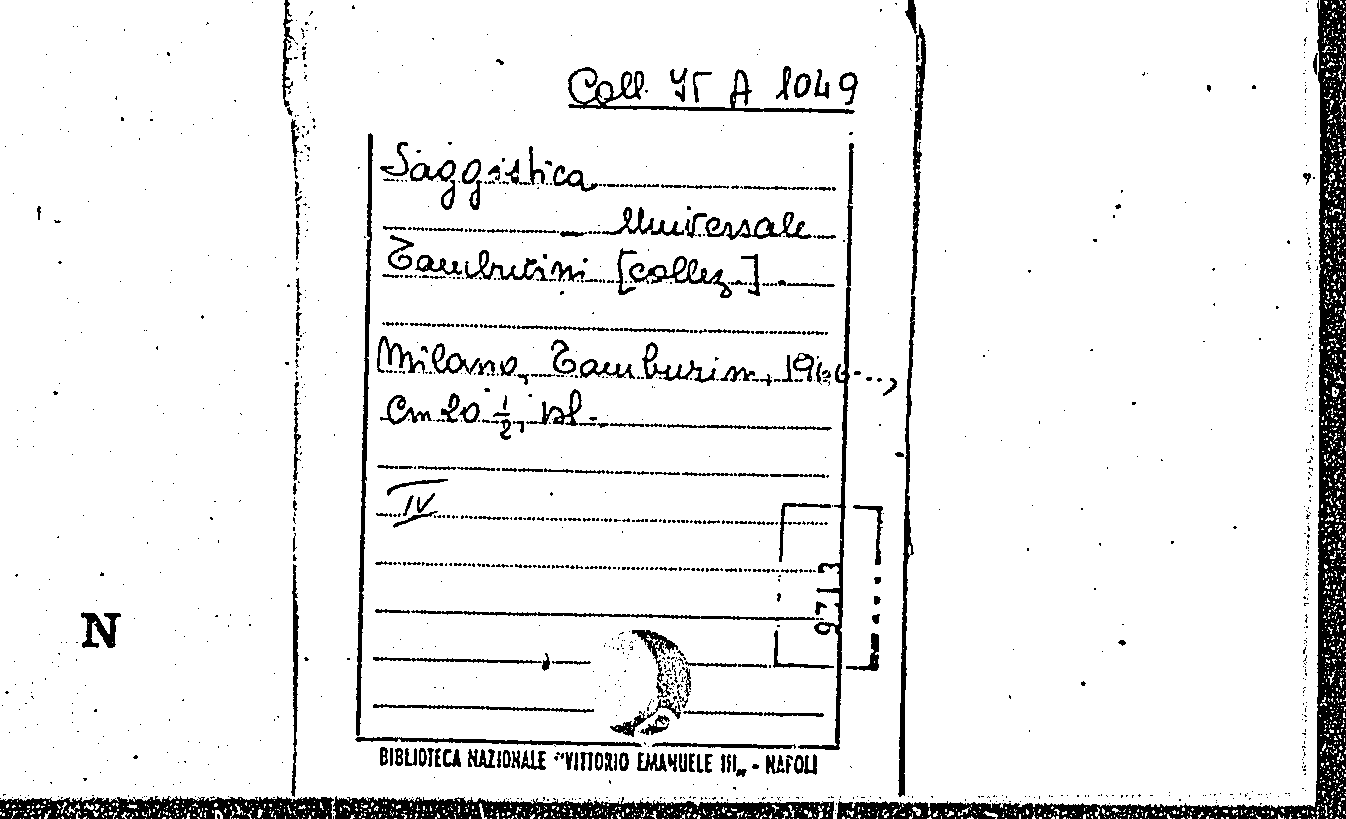 Coll. It A 1049
Saggistica
- Universale
Tamburini [collez.].
Milano, Tamburini, 1966...,
Cm 20 1/2, pl.
IV
9713
N
BIBLIOTECA NAZIONALE "VITTORIO EMANUELE III„ - NAPOLI